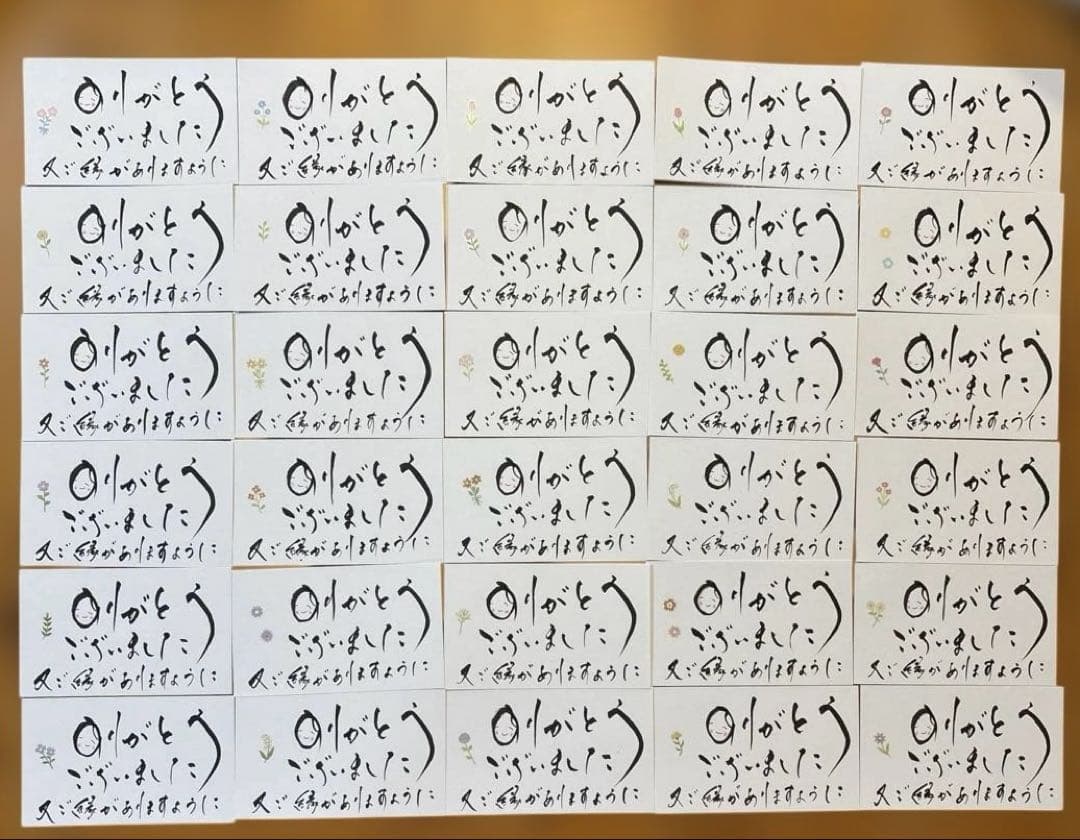 ありがとう
ございました
又ご縁がありますように
ありがとう
ございました
又ご縁がありますように
ありがとう
ございました
又ご縁がありますように
ありがとう
ございました
又ご縁がありますように
ありがとう
ございました
又ご縁がありますように
ありがとう
ございました
又ご縁がありますように
ありがとう
ございました
又ご縁がありますように
ありがとう
ございました
又ご縁がありますように
ありがとう
ございました
又ご縁がありますように
ありがとう
ございました
又ご縁がありますように
ありがとう
ございました
又ご縁がありますように
ありがとう
ございました
又ご縁がありますように
ありがとう
ございました
又ご縁がありますように
ありがとう
ございました
又ご縁がありますように
ありがとう
ございました
又ご縁がありますように
ありがとう
ございました
又ご縁がありますように
ありがとう
ございました
又ご縁がありますように
ありがとう
ございました
又ご縁がありますように
ありがとう
ございました
又ご縁がありますように
ありがとう
ございました
又ご縁がありますように
ありがとう
ございました
又ご縁がありますように
ありがとう
ございました
又ご縁がありますように
ありがとう
ございました
又ご縁がありますように
ありがとう
ございました
又ご縁がありますように
ありがとう
ございました
又ご縁がありますように
ありがとう
ございました
又ご縁がありますように
ありがとう
ございました
又ご縁がありますように
ありがとう
ございました
又ご縁がありますように
ありがとう
ございました
又ご縁がありますように
ありがとう
ございました
又ご縁がありますように